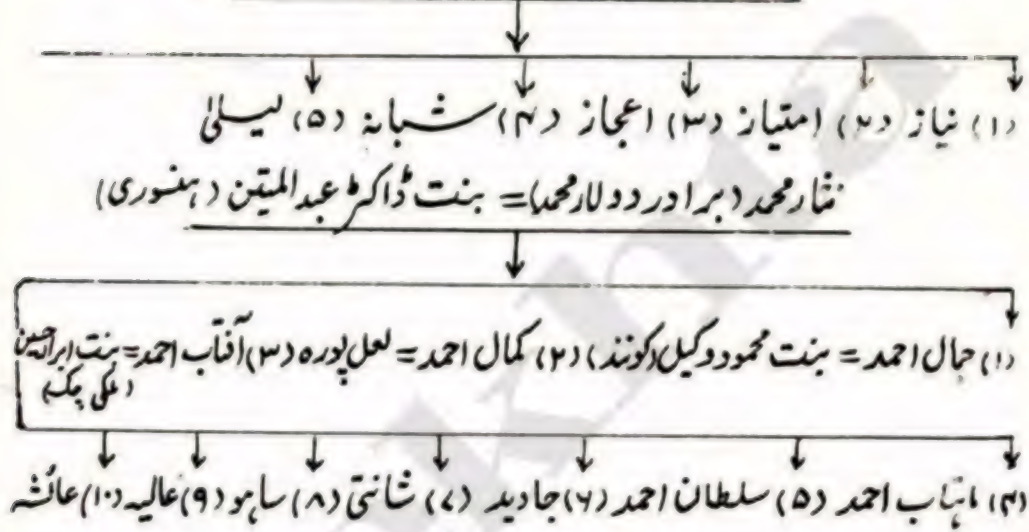 (۱) نیاز (۲) امتیاز (۳) اعجاز (۴) شبانہ (۵) لیلیٰ
نثار محمد (برادر دولار محمد) = بنت ڈاکٹر عبدالمتین (ہنسوری)
(۱) جمال احمد = بنت محمود وکیل (کونند) (۲) کمال احمد = لعل پورہ (۳) آفتاب احمد = بنت ابرار حسین
(ملکی چک)
(۴) ماہتاب احمد (۵) سلطان احمد (۶) جادید (۷) شانتی (۸) ساہو (۹) عالیہ (۱۰) عائشہ